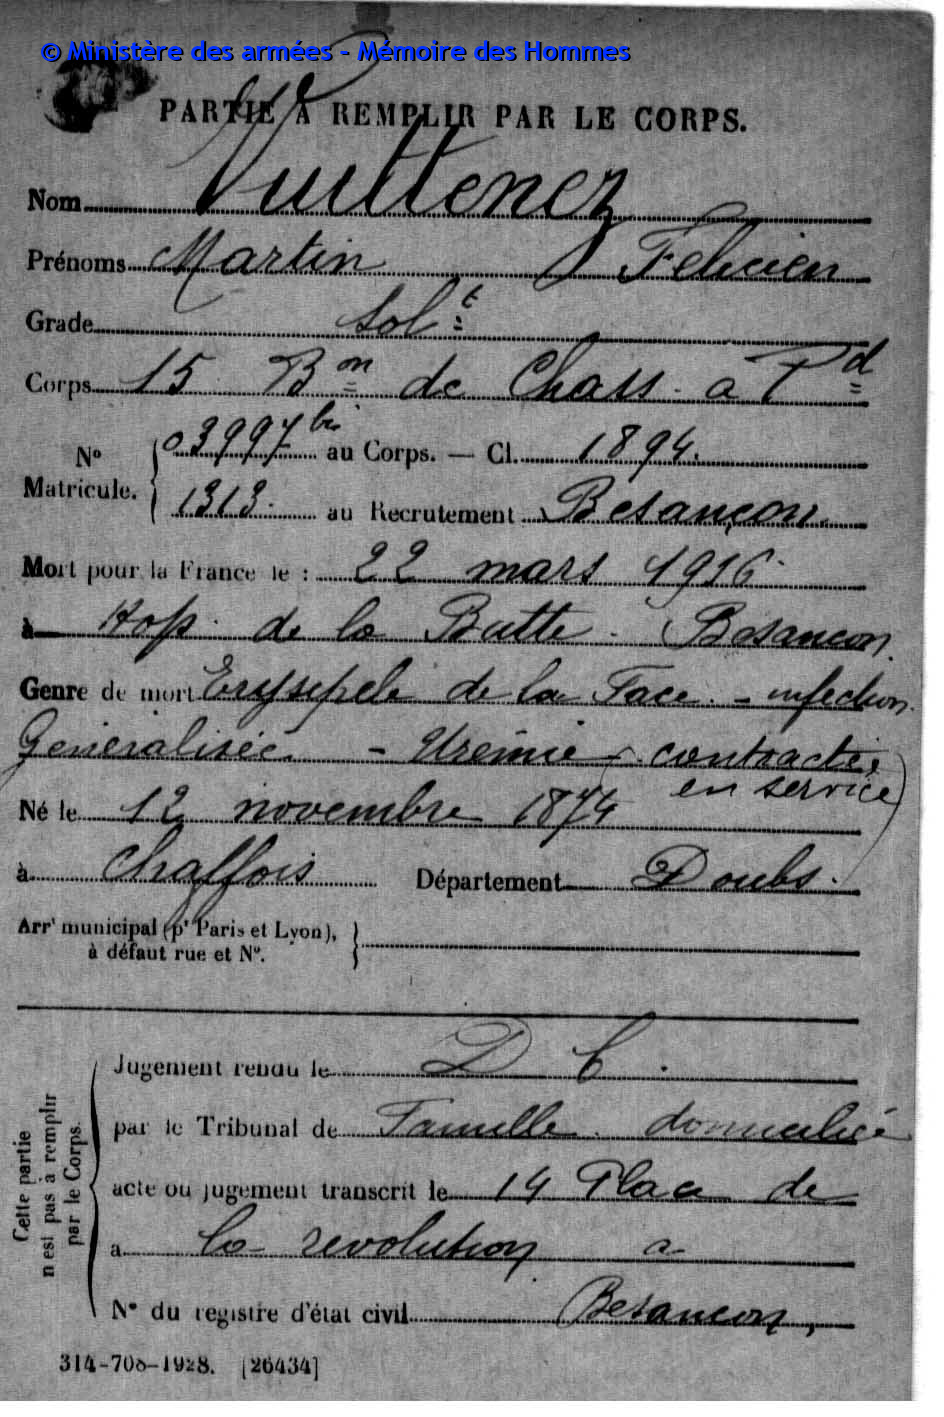 © Ministère des armées - Mémoire des Hommes
PARTIE À REMPLIR PAR LE CORPS.
Nom Vuittenez
Prénoms Martin Felicien
Grade Solt
Corps 15 Bon de Chass. a Pd
No Matricule. 03997 bis au Corps. — Cl. 1894.
1313. au Recrutement Besançon.
Mort pour la France le : 22 mars 1916
à Hop. de la Butte. Besancon.
Genre de mort Erysipele de la Face. - infection
Généralisée. - Urémie (contractée
en service)
Né le 12 novembre 1874
à Chaffois Département Doubs.
Arrt municipal (pr Paris et Lyon),
à défaut rue et No.
Cette partie n'est pas à remplir par le Corps.
Jugement rendu le D C.
par le Tribunal de Famille domiciliée
acte ou jugement transcrit le 14 Place de
a la revolution a
No du registre d'état civil Besancon,
314-708-1928. [26434]